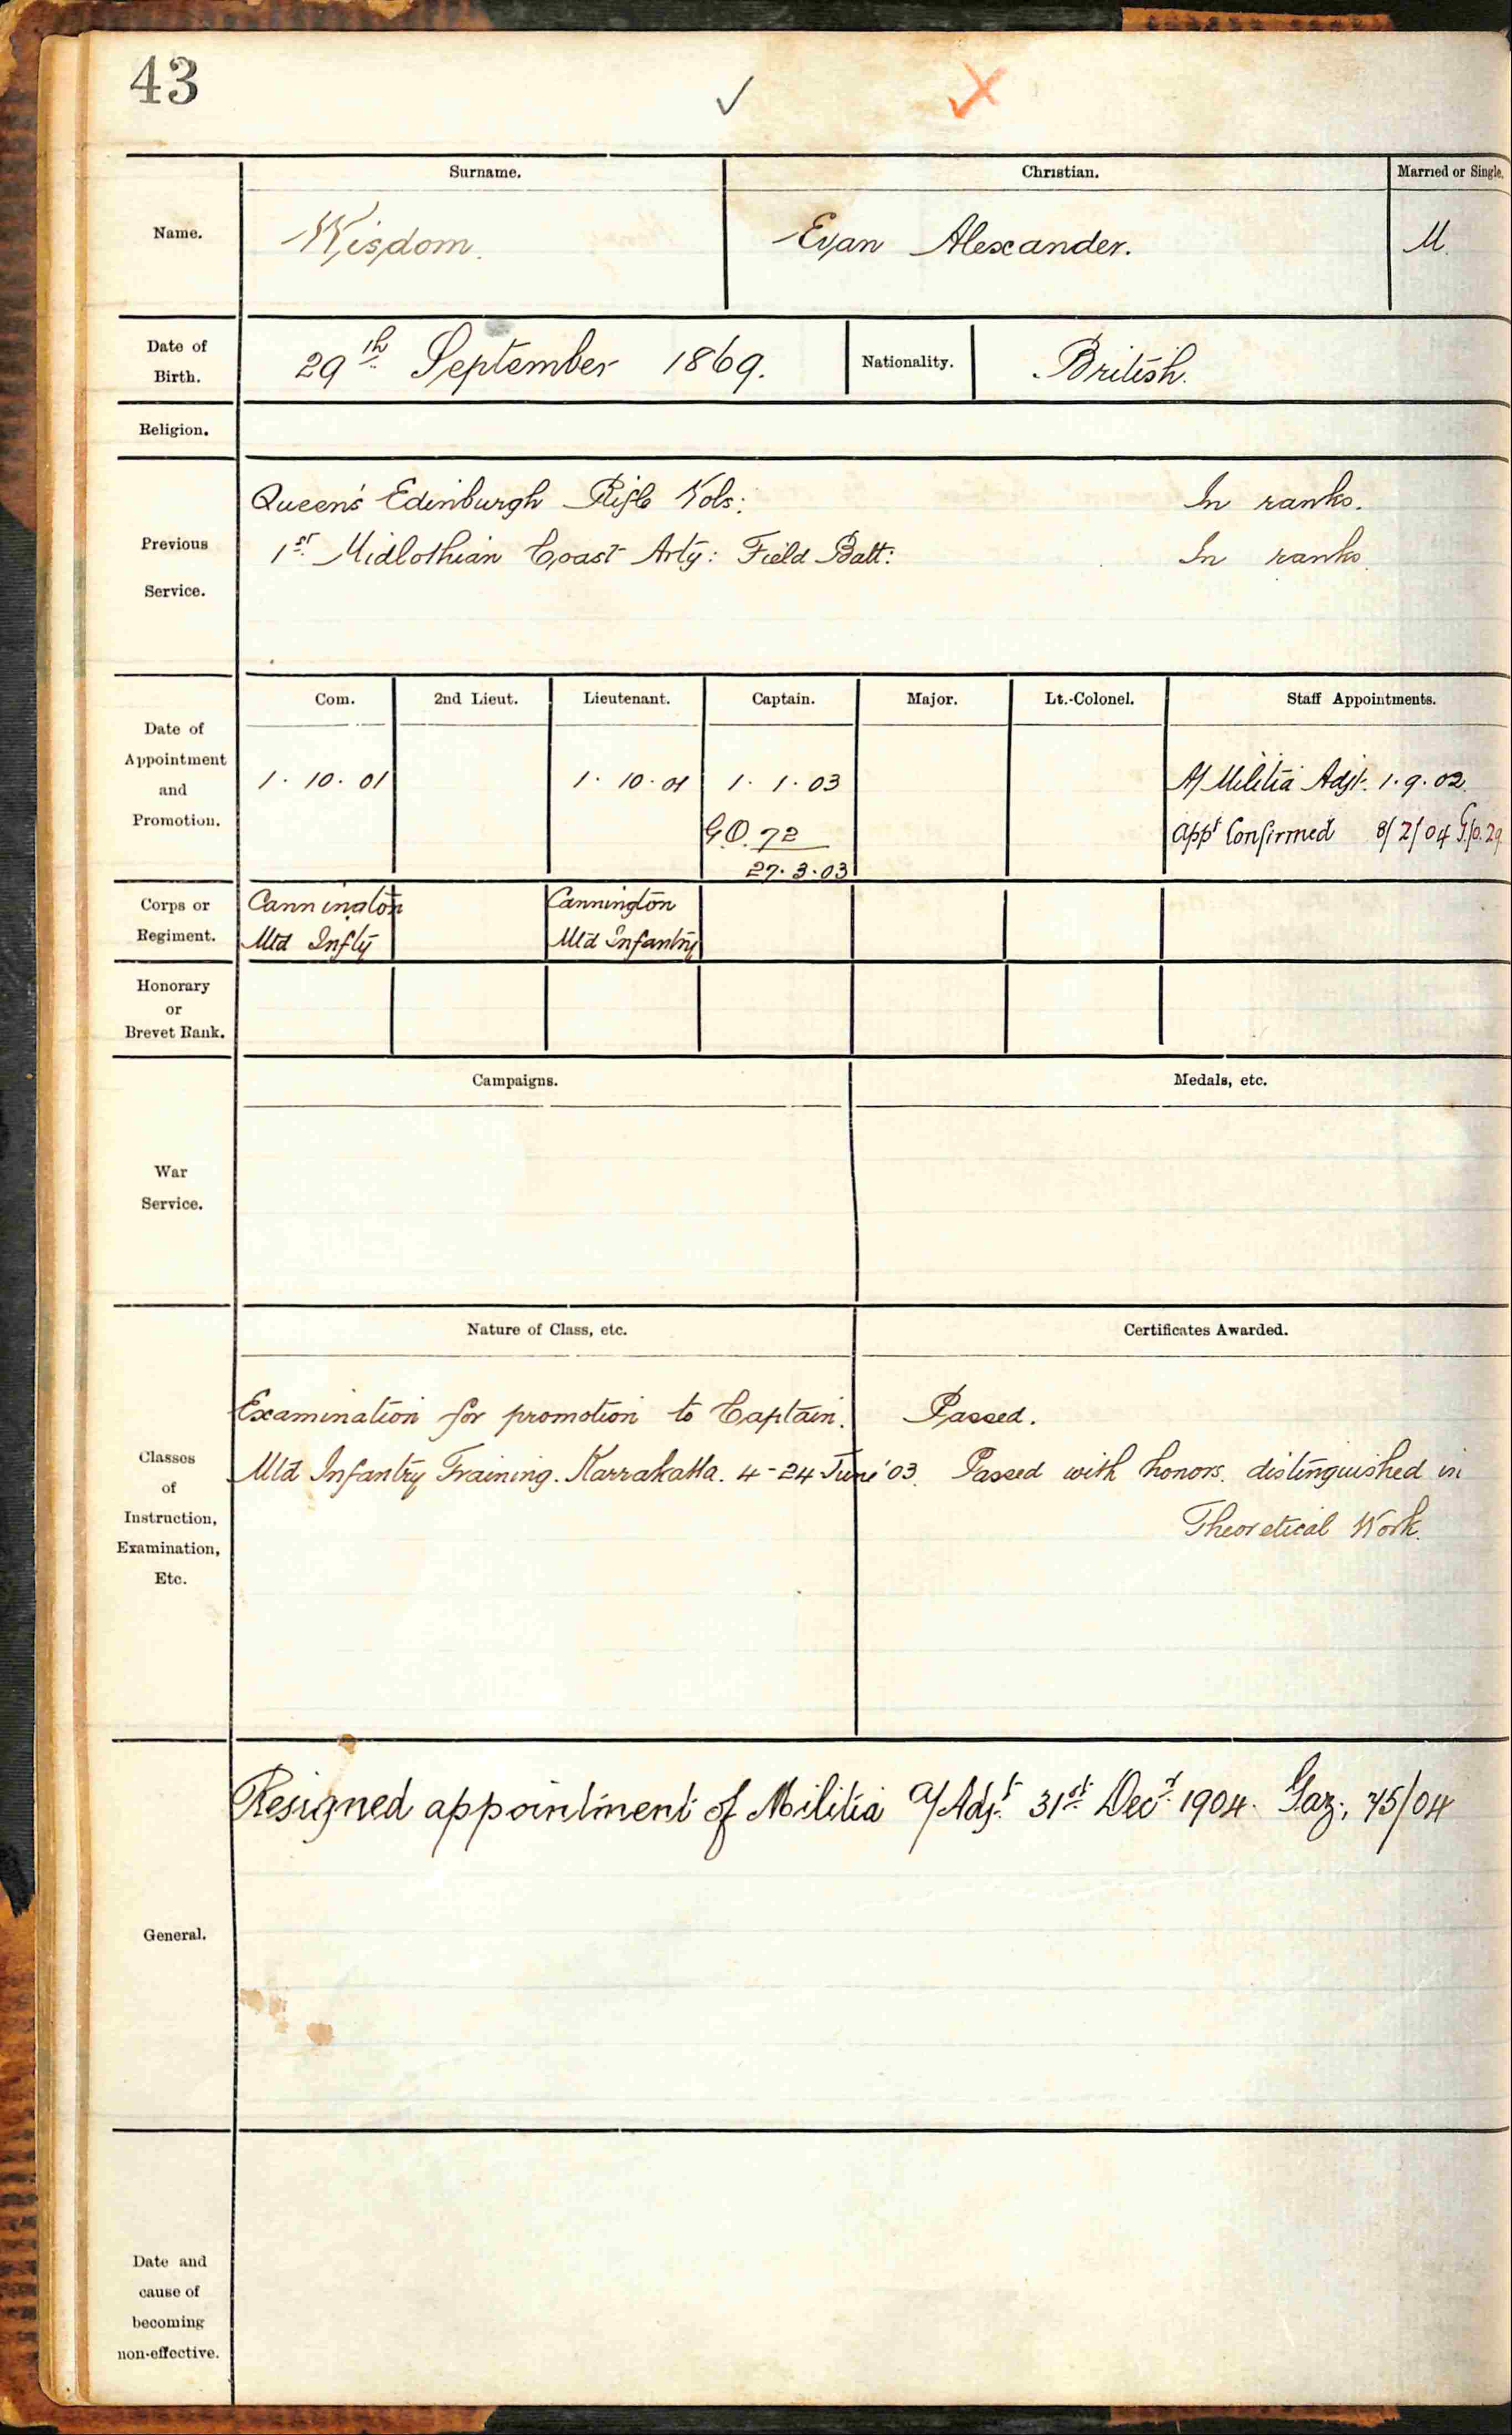 43
Surname. Christian. Married or Single.
Name. Wisdom. Evan Alexander. M.
Date of Birth. 29th September 1869. Nationality. British.
Religion.
Queen's Edinburgh Rifle Vols: In ranks.
Previous Service. 1st Midlothian Coast Arty: Field Batt: In ranks.
Com. 2nd Lieut. Lieutenant. Captain. Major. Lt.-Colonel. Staff Appointments.
Date of Appointment and Promotion. 1. 10. 01 1. 10. 01 1. 1. 03 A/ Militia Adjt. 1. 9. 02.
G.O. 72 Appt Confirmed 8/2/04 G.O. 29
27. 3. 03
Corps or Regiment. Cannington Cannington
Mtd Infty Mtd Infantry
Honorary or Brevet Rank.
Campaigns. Medals, etc.
War Service.
Nature of Class, etc. Certificates Awarded.
Examination for promotion to Captain. Passed.
Classes of Instruction, Examination, Etc. Mtd Infantry Training. Karrakatta. 4-24 June '03. Passed with honors. distinguished in
Theoretical Work.
Resigned appointment of Militia a/Adjt 31st Decr 1904. Gaz; 75/04
General.
Date and cause of becoming non-effective.